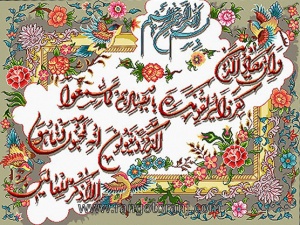 بسم الله الرحمن الرحیم
و ان یکاد الذین
کفروا لیزلقونک بابصارهم لما سمعوا
الذکر و یقولون انه لمجنون و ما هو
الا ذکر للعالمین